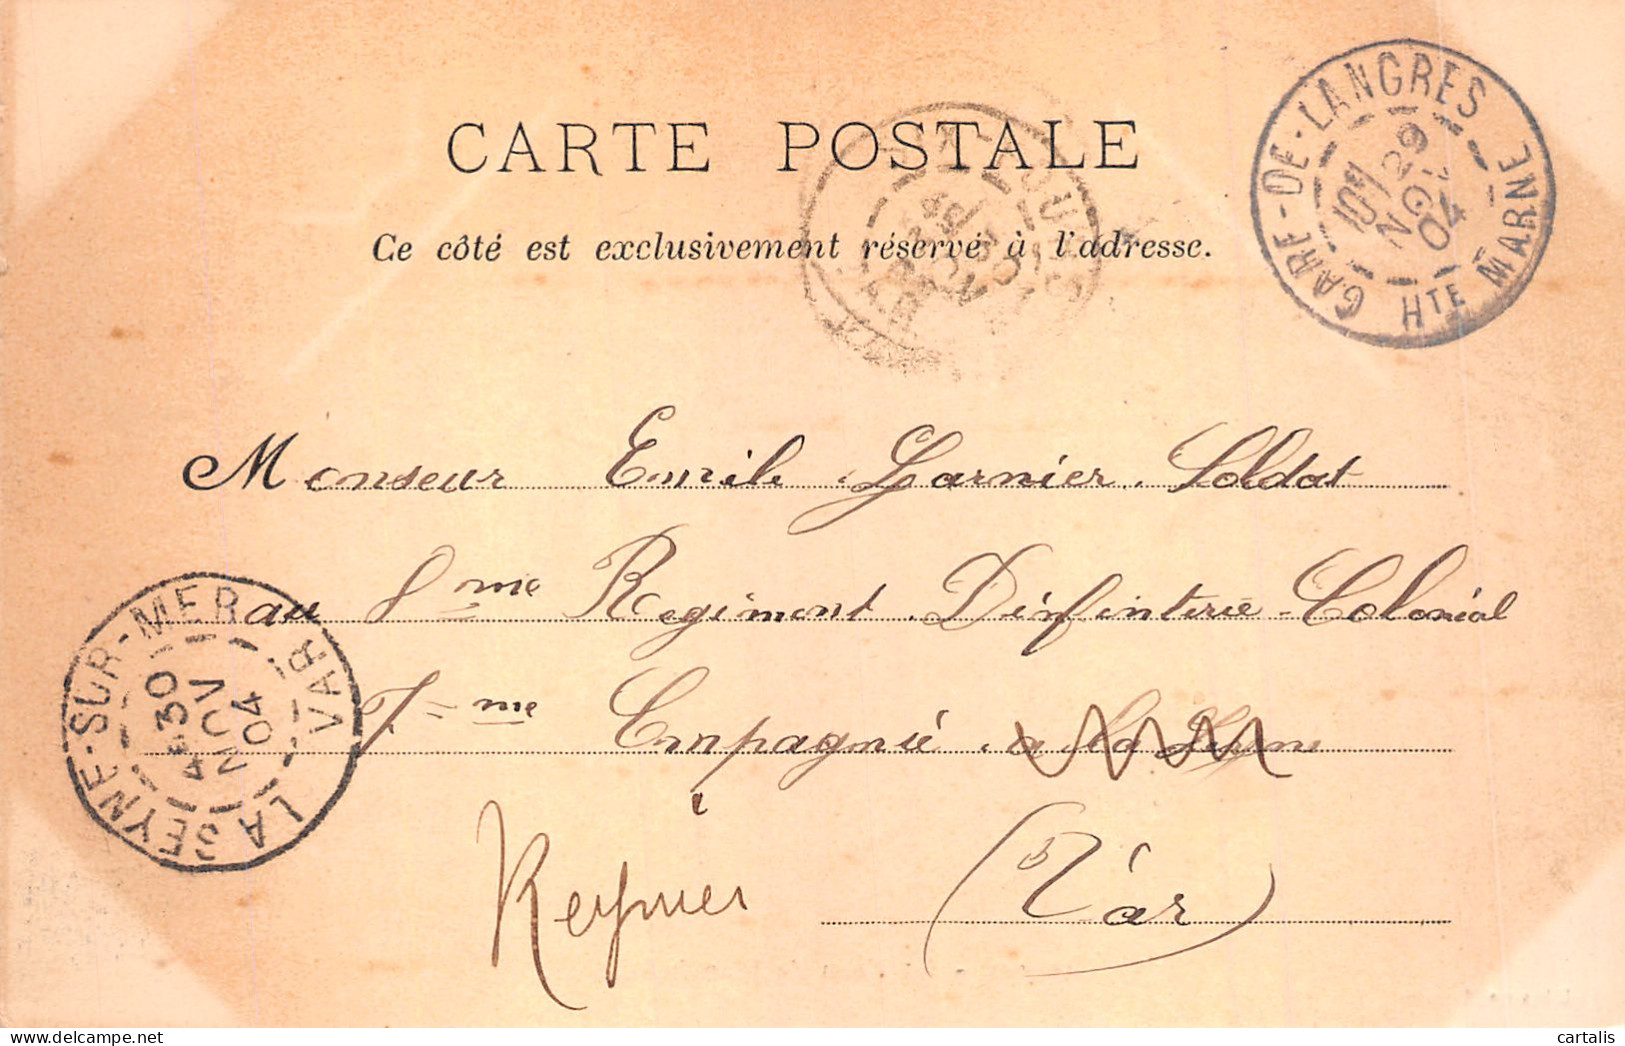 CARTE POSTALE
Ce côté est exclusivement réservé à l'adresse.
GARE-DE-LANGRES
10M 29
NOV
04
HTE MARNE
Monseur Emile Garnier Soldat
au 8me Regiment Dinfinterie Colonial
7me Compagnié a la Seyne
Reynier (Var)
LA SEYNE-SUR-MER
4E 30
NOV
04
VAR
cartalis